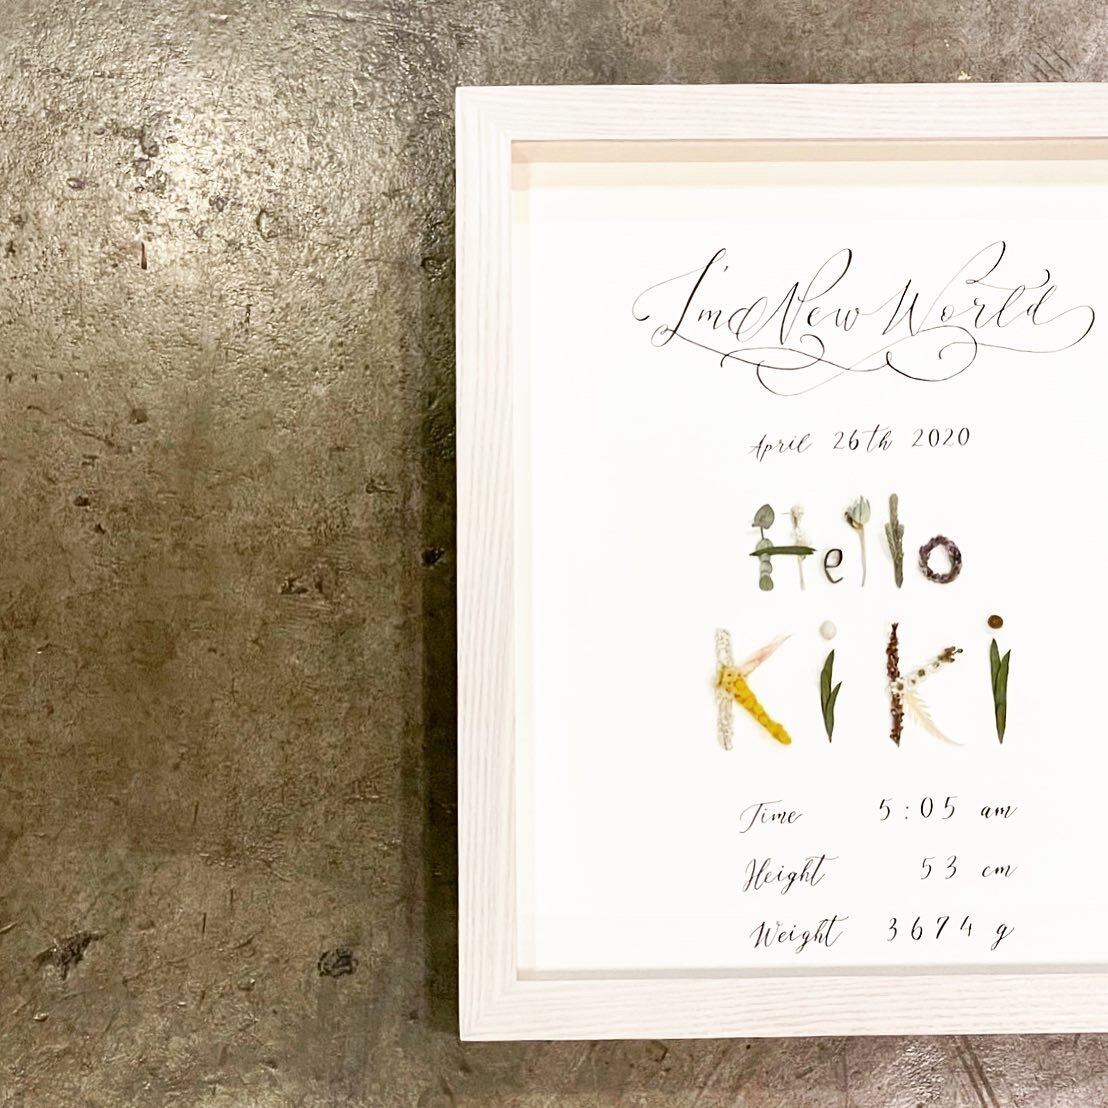 I'm a New World
April 26th 2020
Hello
Kiki
Time 5:05 am
Height 53 cm
Weight 3674 g